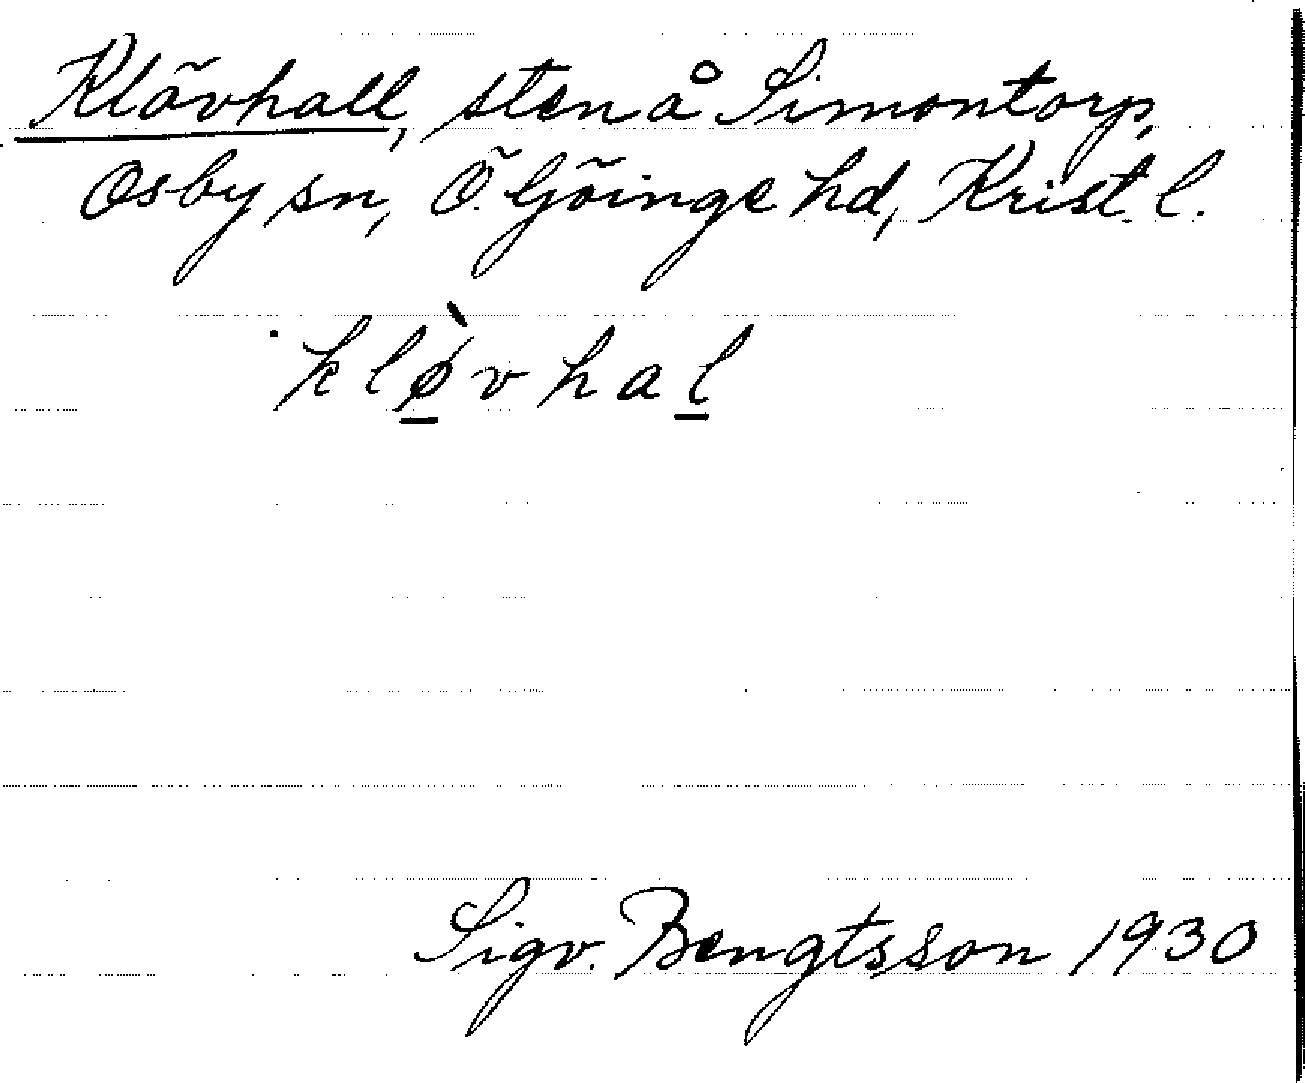 Klövhall, sten å Simontorp,
Osby sn, Ö. Göinge hd, Krist. l.
klø̱̀vhaḻ
Sigv. Bengtsson 1930